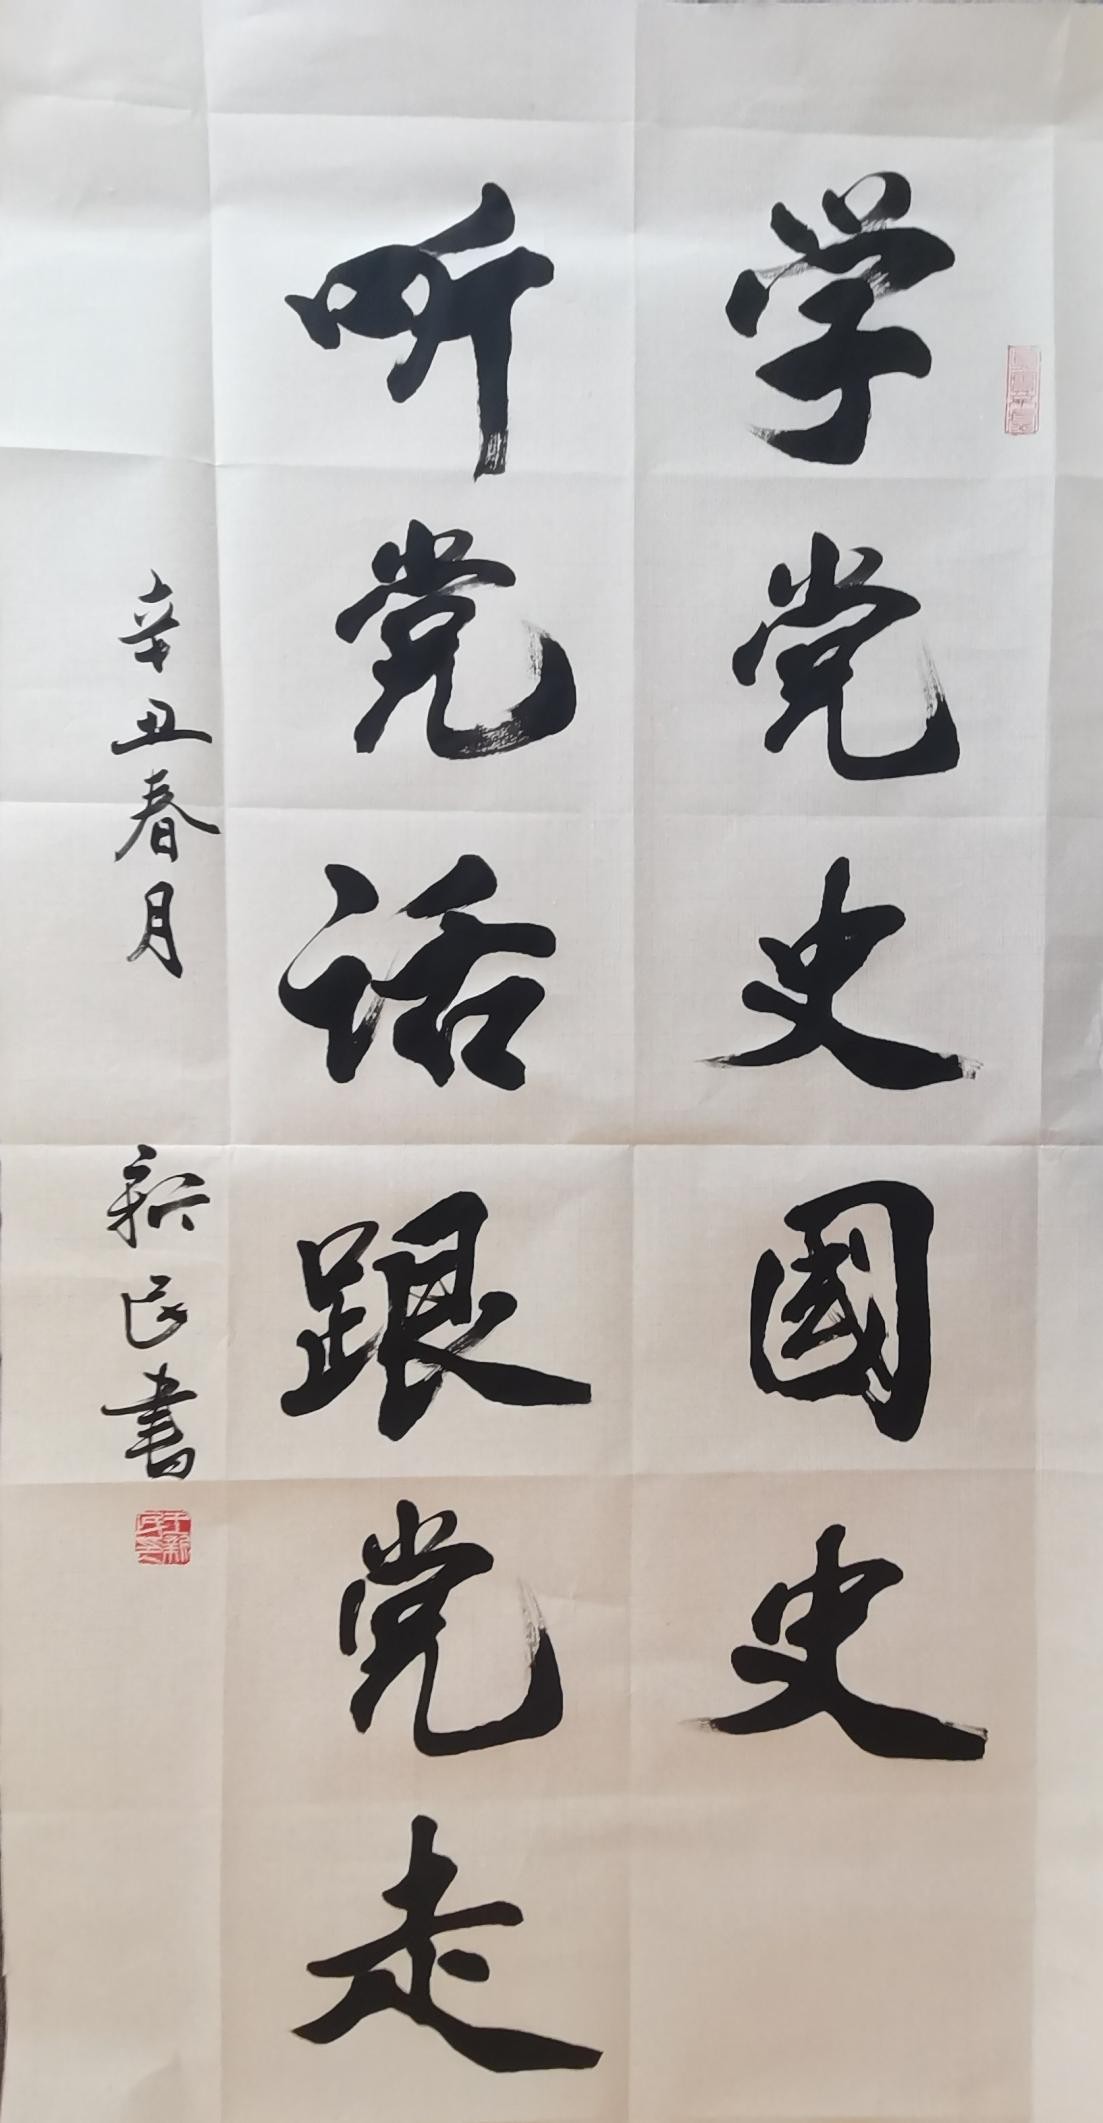 学党史國史
听党话跟党走
辛丑春月 新民書